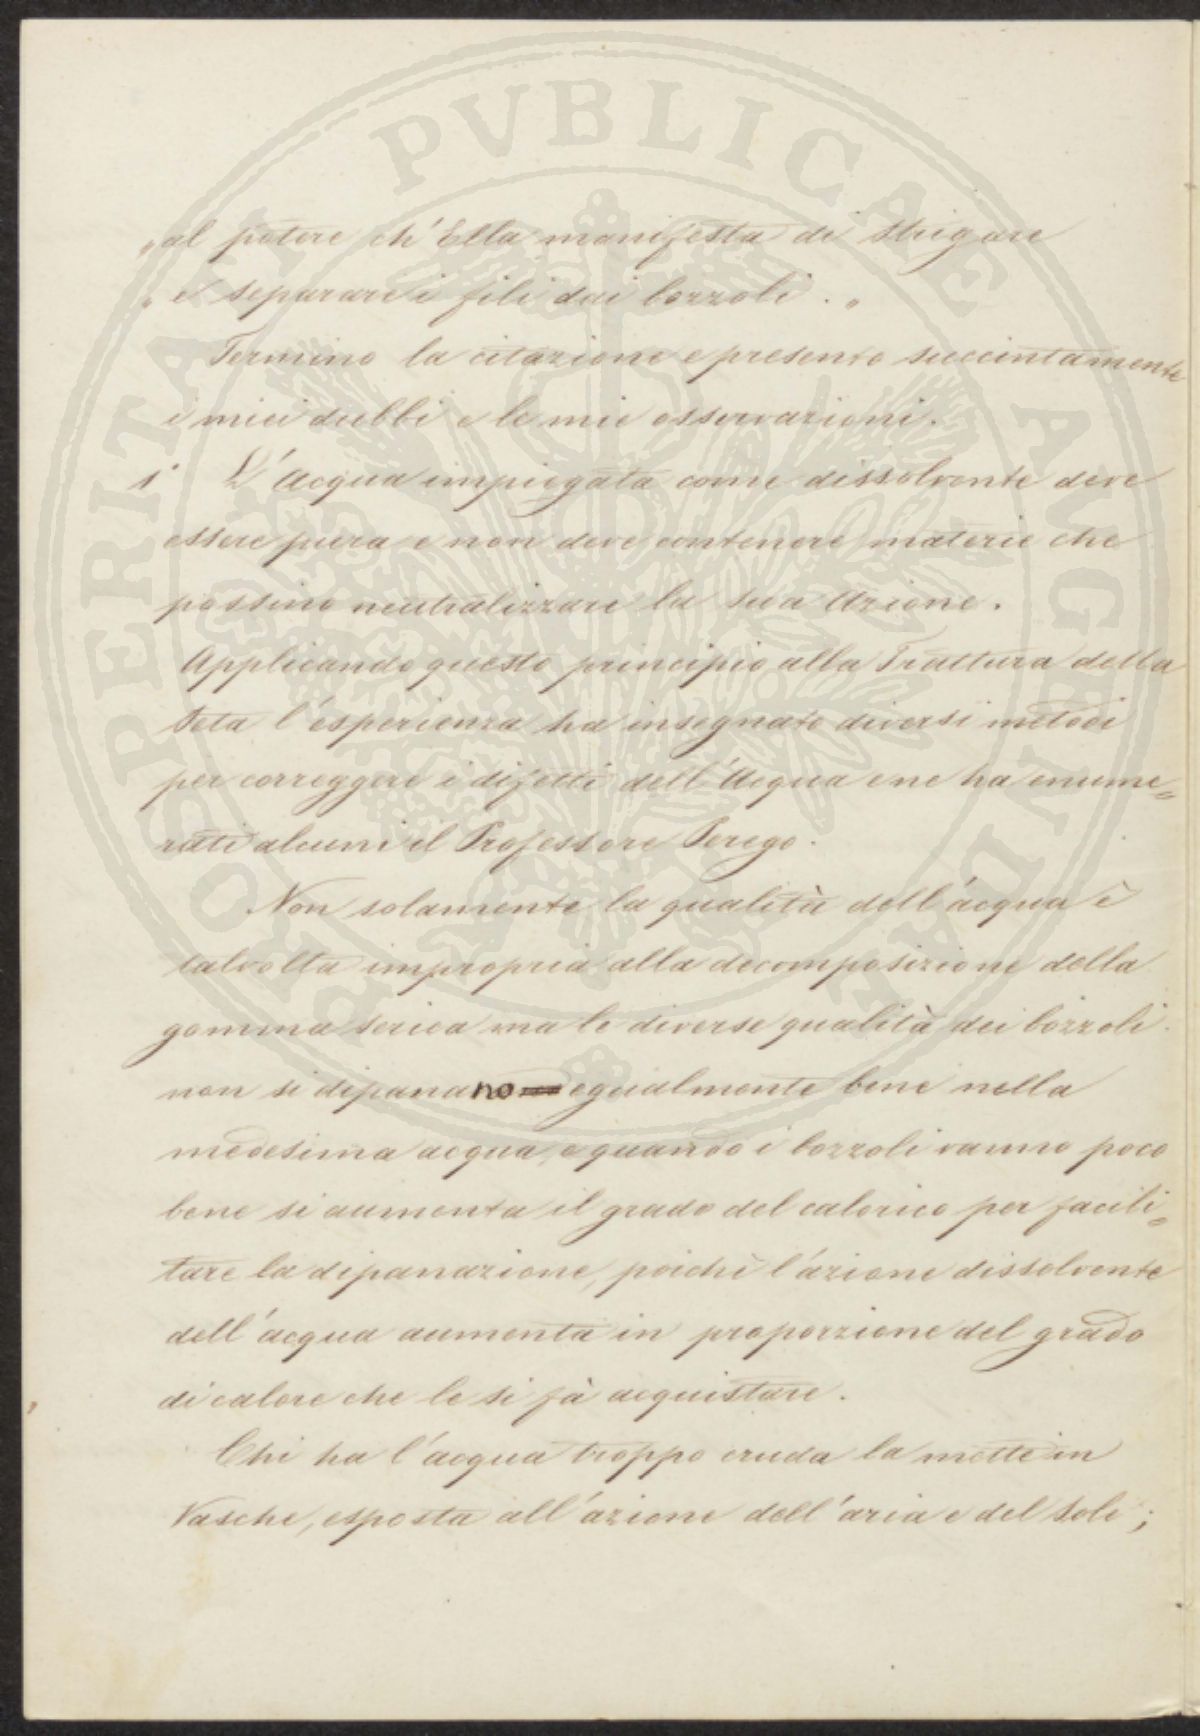 „ al potere ch'Ella manifesta di strigare
„ e separare i fili dai bozzoli . „
Termino la citazione e presento succintamente
i miei dubbi e le mie osservazioni.
1° L'Acqua impiegata come dissolvente deve
essere pura e non deve contenere materie che
possino neutralizzare la sua Azione.
Applicando questo principio alla Trattura della
Seta l'esperienza ha insegnato diversi metodi
per correggere i difetti dell'Acqua e ne ha enume=
rati alcuni il Professore Perego.
Non solamente la qualità dell'acqua è
talvolta impropria alla decomposizione della
gomma serica ma le diverse qualità dei bozzoli
non si dipanano egualmente bene nella
medesima acqua, e quando i bozzoli vanno poco
bene si aumenta il grado del calorico per facili=
tare la dipanazione, poichè l'azione dissolvente
dell'acqua aumenta in proporzione del grado
di calore che le si fà acquistare.
Chi ha l'acqua troppo cruda la mette in
Vasche, esposta all'azione dell'aria e del Sole;
PROSPERITATI PVBLICAE AVGENDAE